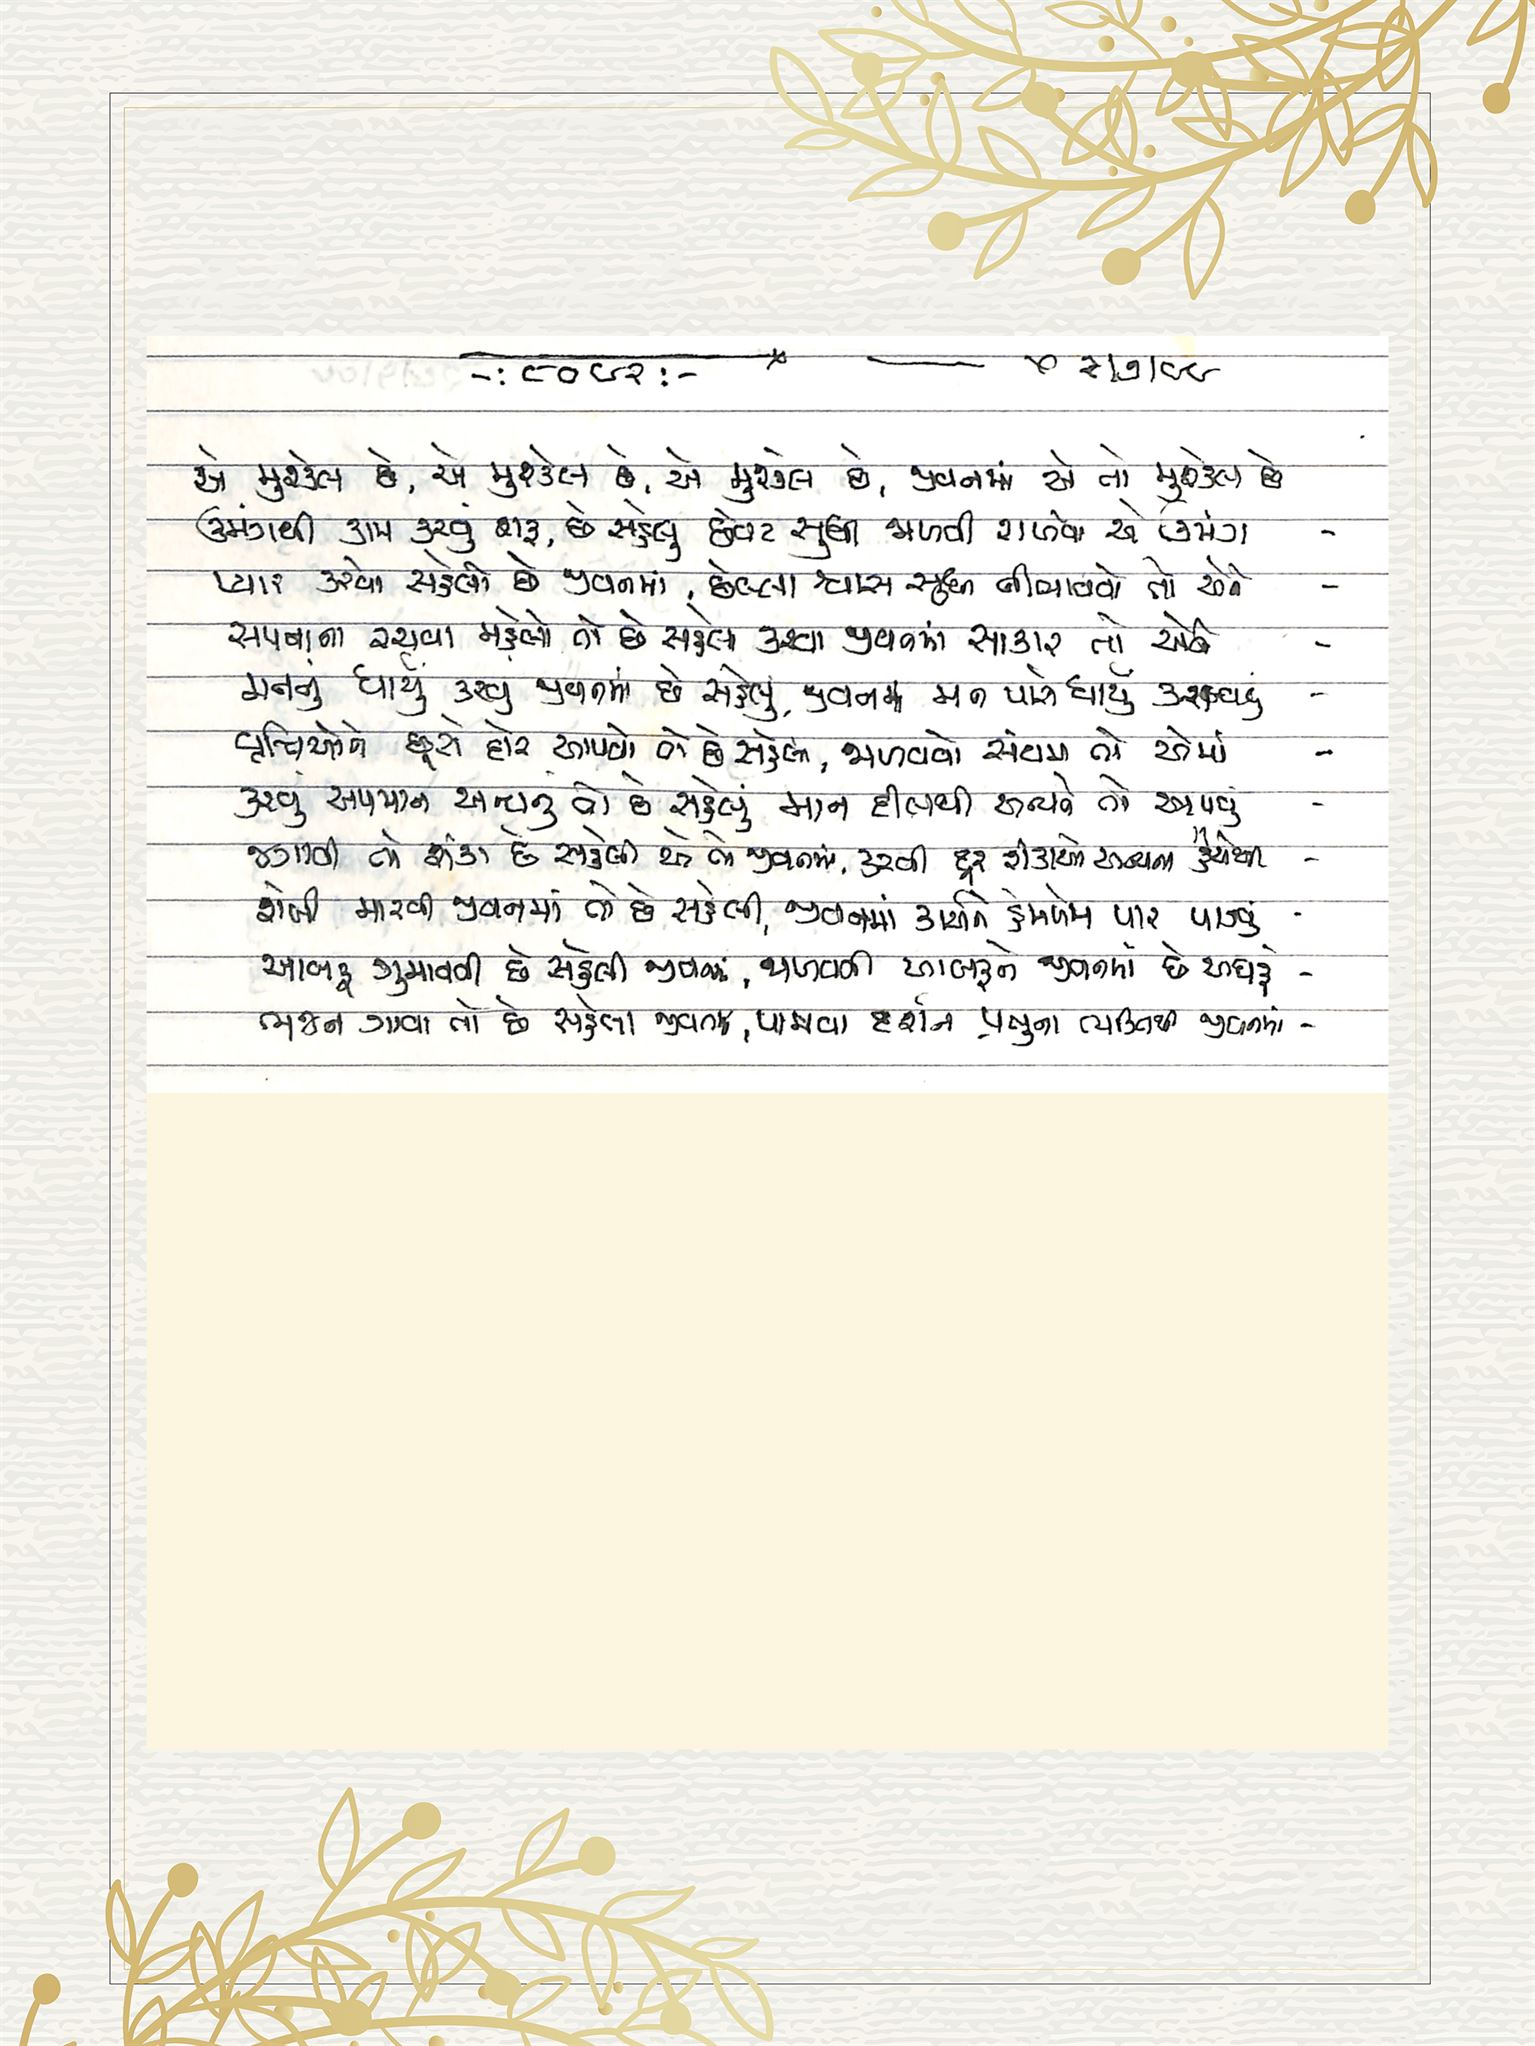 -: ૮૦૯૨ :- ૨/૭/૯૯
એ મુશ્કેલ છે, એ મુશ્કેલ છે, એ મુશ્કેલ છે, જીવનમાં એ તો મુશ્કેલ છે
ઉમંગથી કામ કરવું શરૂ, છે સહેલું છેવટ સુધી જાળવી રાખવો એ ઉમંગ -
પ્યાર કરવો સહેલો છે જીવનમાં, છેલ્લા શ્વાસ સુધી નીભાવવો તો એને -
સપનાંના રચવા મહેલો તો છે સહેલા કરવા જીવનમાં સાકાર તો એને -
મનનું ધાર્યું કરવું જીવનમાં છે સહેલું, જીવનમાં મન પાસે ધાર્યું કરાવવું -
વૃત્તિઓને છૂટો દોર આપવો તો છે સહેલો, જાળવવો સંયમ તો એમાં -
કરવું અપમાન અન્યનું તો છે સહેલું માન દીલથી અન્યને તો આપવું -
જગાવવી તો શંકા છે સહેલી એ તો જીવનમાં, કરવી દૂર શંકાઓ અન્યના હૈયેથી -
શેખી મારવી જીવનમાં તો છે સહેલી, જીવનમાં કાર્યને હેમખેમ પાર પાડવું -
આબરૂ ગુમાવવી છે સહેલી જીવનમાં, જાળવવી આબરૂને જીવનમાં છે અઘરું -
ભજન ગાવા તો છે સહેલા જીવનમાં, પામવા દર્શન પ્રભુના ભક્તિથી જીવનમાં -